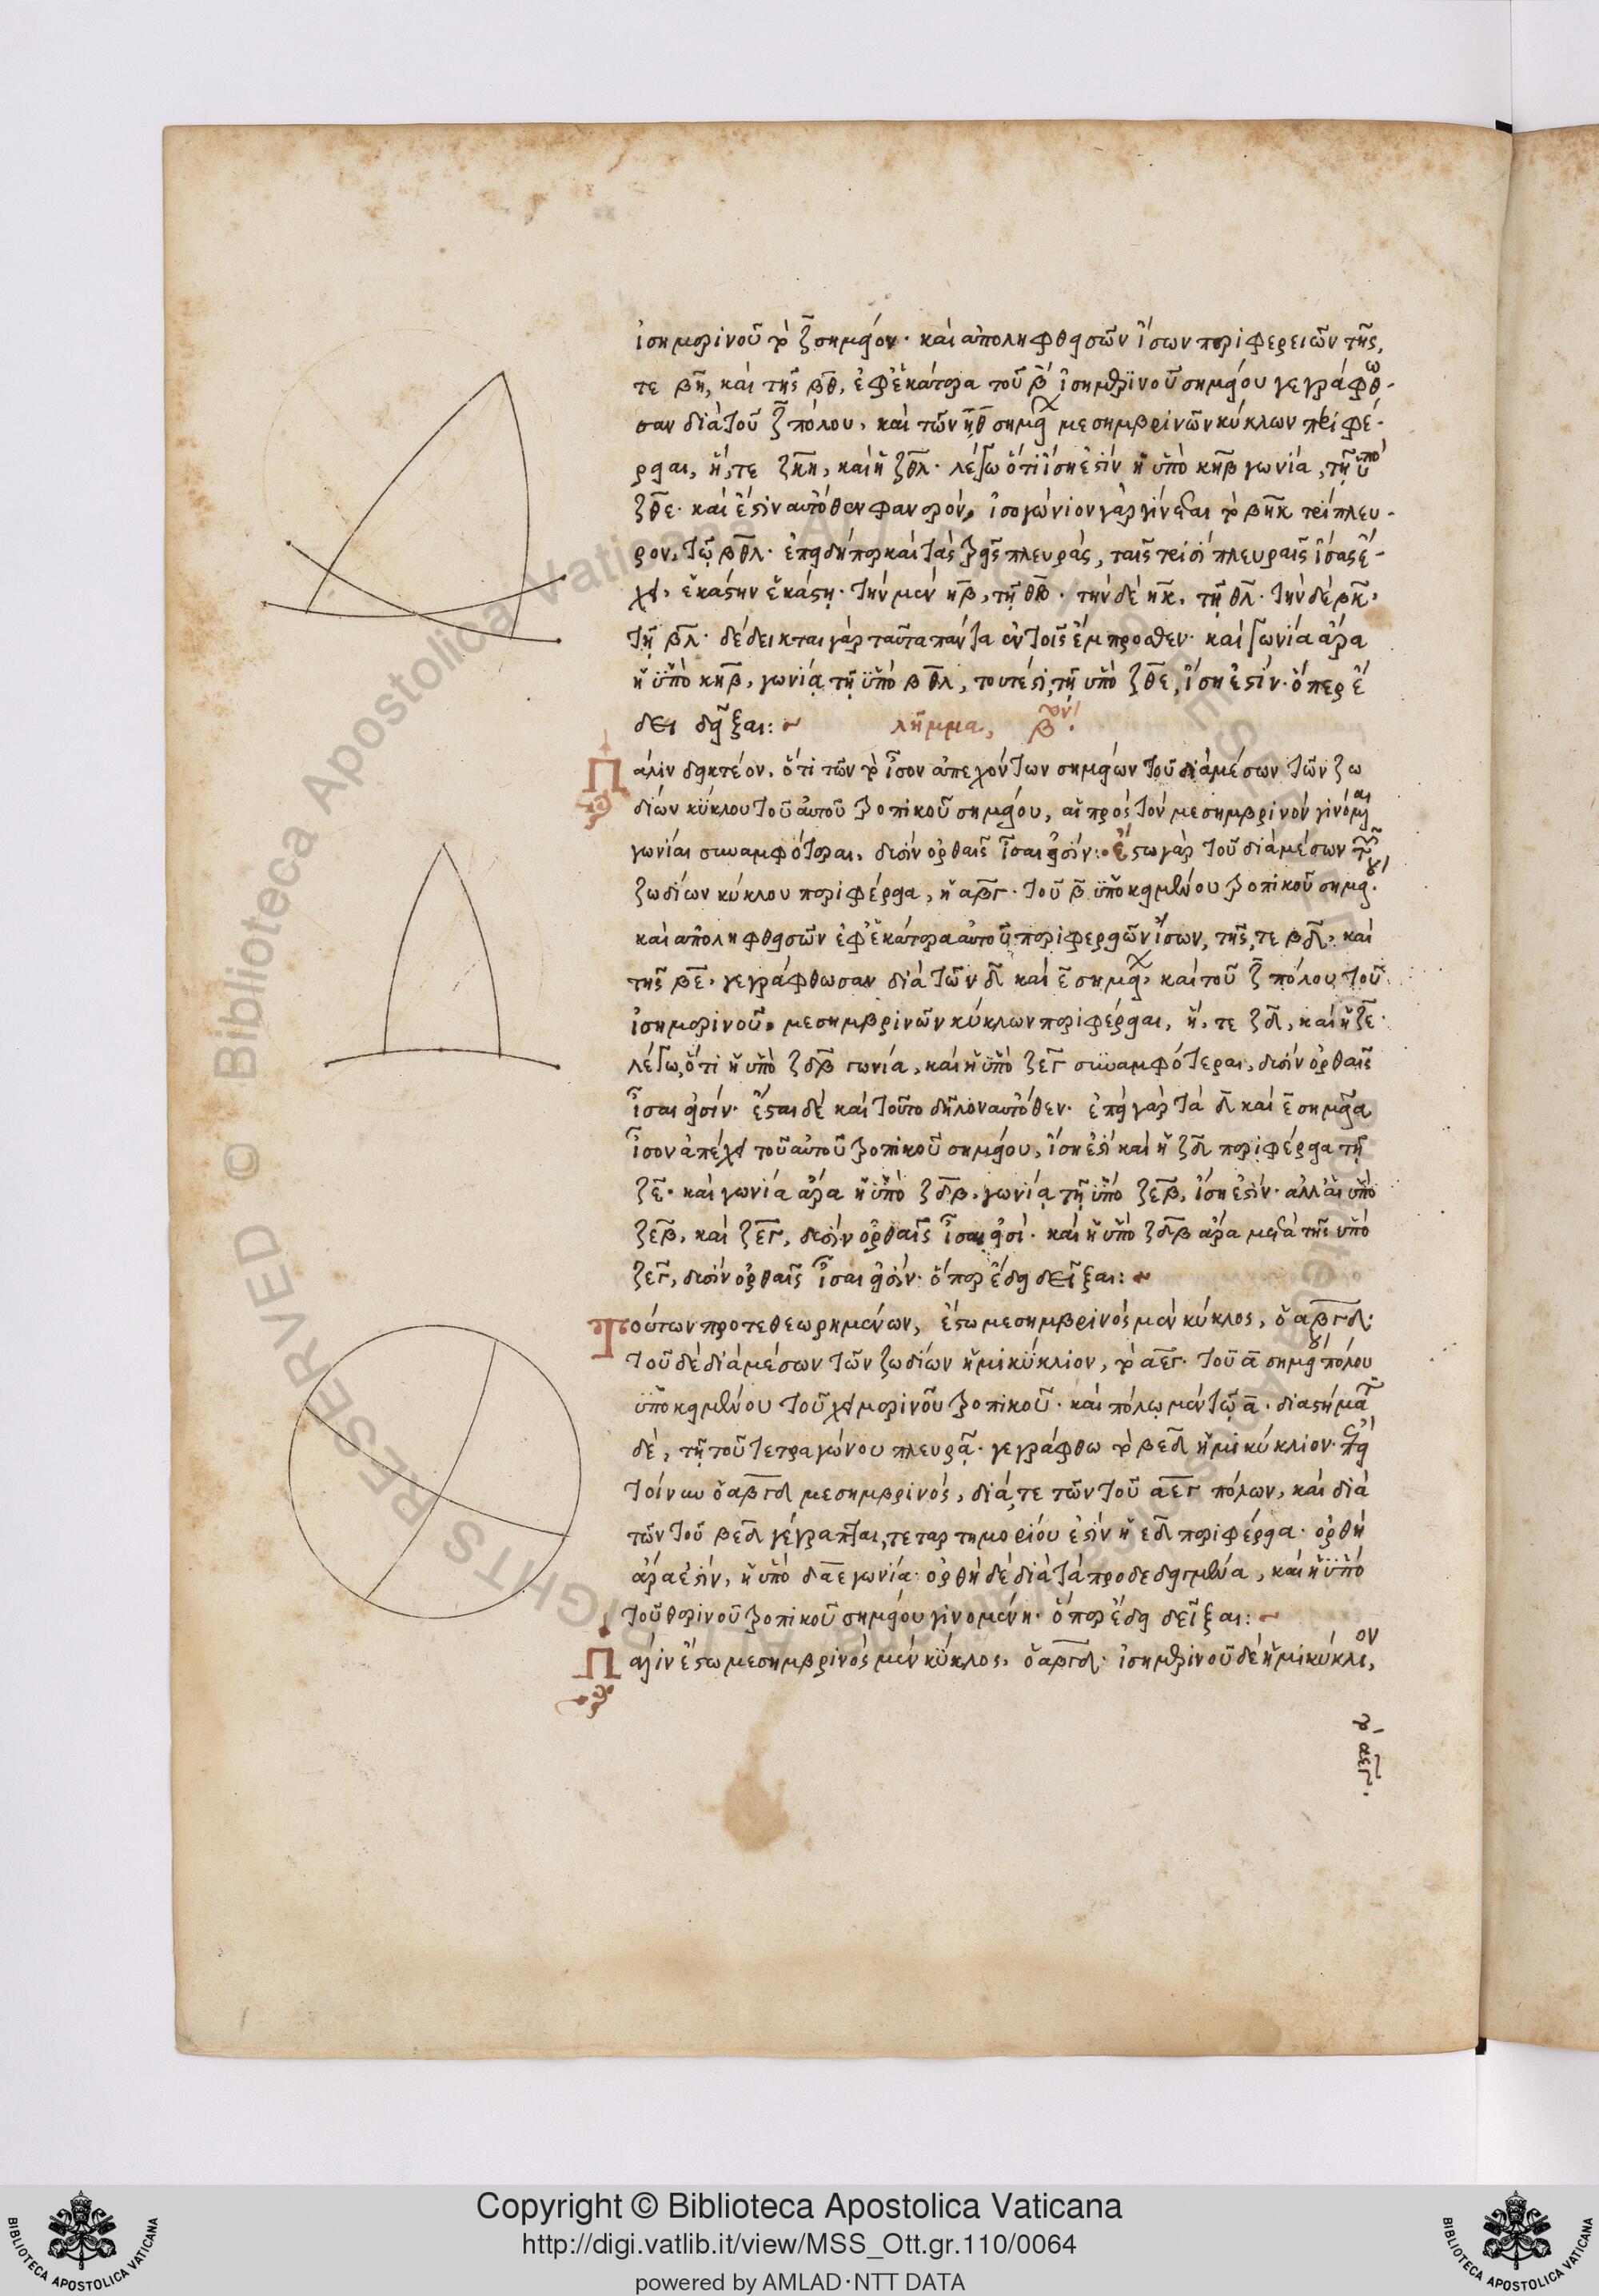 ἰσημερινοῦ τὸ ζ σημεῖον· καὶ ἀποληφθεισῶν ἴσων περιφερειῶν τῆς,
τε βη, καὶ τῆς βθ, ἐφ' ἑκάτερα τοῦ β ἰσημερινοῦ σημείου γεγράφθω-
σαν διὰ τοῦ ζ πόλου, καὶ τῶν η θ σημείων μεσημβρινῶν κύκλων περιφέ-
ρειαι, ἥ, τε ζκη, καὶ ἡ ζθλ· λέγω ὅτι ἴση ἐστὶν ἡ ὑπὸ κηβ γωνία, τῇ ὑπὸ
ζθε· καὶ ἔστιν αὐτόθεν φανερόν, ἰσογώνιον γὰρ γίνεται τὸ βηκ τρίπλευ-
ρον, τῷ βθλ· ἐπειδήπερ καὶ τὰς τρεῖς πλευράς, ταῖς τρισὶ πλευραῖς ἴσας ἔ-
χει, ἑκάστην ἑκάστῃ· τὴν μὲν ηβ, τῇ θβ· τὴν δὲ ηκ, τῇ θλ· τὴν δὲ βκ,
τῇ βλ· δέδεικται γὰρ ταῦτα πάντα ἐν τοῖς ἔμπροσθεν· καὶ γωνία ἄρα
ἡ ὑπὸ κηβ, γωνίᾳ τῇ ὑπὸ βθλ, τουτέστι, τῇ ὑπὸ ζθε, ἴση ἐστίν· ὅπερ ἔ
δει δεῖξαι: ~ λῆμμα, βον·
Πάλιν δεικτέον, ὅτι τῶν τὸ ἴσον ἀπεχόντων σημείων τοῦ διὰ μέσων τῶν ζω
δίων κύκλου τοῦ αὐτοῦ τροπικοῦ σημείου, αἱ πρὸς τὸν μεσημβρινὸν γινόμεναι
γωνίαι συναμφότεραι, δυσὶν ὀρθαῖς ἴσαι εἰσίν: ἔστω γὰρ τοῦ διὰ μέσων τῶν
ζωδίων κύκλου περιφέρεια, ἡ αβγ· τοῦ β ὑποκειμένου τροπικοῦ σημείου·
καὶ ἀποληφθεισῶν ἐφ' ἑκάτερα αὐτοῦ περιφερειῶν ἴσων, τῆς, τε βδ, καὶ
τῆς βε, γεγράφθωσαν διὰ τῶν δ καὶ ε σημείων, καὶ τοῦ ζ πόλου τοῦ
ἰσημερινοῦ, μεσημβρινῶν κύκλων περιφέρειαι, ἥ, τε ζδ, καὶ ἡ ζε·
λέγω, ὅτι ἡ ὑπὸ ζδβ γωνία, καὶ ἡ ὑπὸ ζεγ συναμφότεραι, δυσὶν ὀρθαῖς
ἴσαι εἰσίν· ἔσται δὲ καὶ τοῦτο δῆλον αὐτόθεν· ἐπεὶ γὰρ τὰ δ καὶ ε σημεῖα
ἴσον ἀπέχει τοῦ αὐτοῦ τροπικοῦ σημείου, ἴση ἐστὶ καὶ ἡ ζδ περιφέρεια τῇ
ζε· καὶ γωνία ἄρα ἡ ὑπὸ ζδβ, γωνίᾳ τῇ ὑπὸ ζεβ, ἴση ἐστίν· ἀλλ' αἱ ὑπὸ
ζεβ, καὶ ζεγ, δυσὶν ὀρθαῖς ἴσαι εἰσί· καὶ ἡ ὑπὸ ζδβ ἄρα μετὰ τῆς ὑπὸ
ζεγ, δυσὶν ὀρθαῖς ἴσαι εἰσίν· ὅπερ ἔδει δεῖξαι: ~
Τούτων προτεθεωρημένων, ἔστω μεσημβρινὸς μὲν κύκλος, ὁ αβγδ·
τοῦ δὲ διὰ μέσων τῶν ζωδίων ἡμικύκλιον, τὸ αεγ· τοῦ α σημείου πόλου
ὑποκειμένου τοῦ χειμερινοῦ τροπικοῦ· καὶ πόλῳ μὲν τῷ α· διαστήματι
δέ, τῇ τοῦ τετραγώνου πλευρᾷ· γεγράφθω τὸ βεδ ἡμικύκλιον· ἐπεὶ
τοίνυν ὁ αβγδ μεσημβρινός, διά, τε τῶν τοῦ αεγ πόλων, καὶ διὰ
τῶν τοῦ βεδ γέγραπται, τεταρτημορίου ἐστὶν ἡ εδ περιφέρεια· ὀρθὴ
ἄρα ἐστίν, ἡ ὑπὸ δαε γωνία· ὀρθὴ δὲ διὰ τὰ προδεδειγμένα, καὶ ἡ ὑπὸ
τοῦ θερινοῦ τροπικοῦ σημείου γινομένη· ὅπερ ἔδει δεῖξαι: ~
Πάλιν ἔστω μεσημβρινὸς μὲν κύκλος, ὁ αβγδ· ἰσημερινοῦ δὲ ἡμικύκλιον,
Copyright © Biblioteca Apostolica Vaticana
http://digi.vatlib.it/view/MSS_Ott.gr.110/0064
powered by AMLAD·NTT DATA